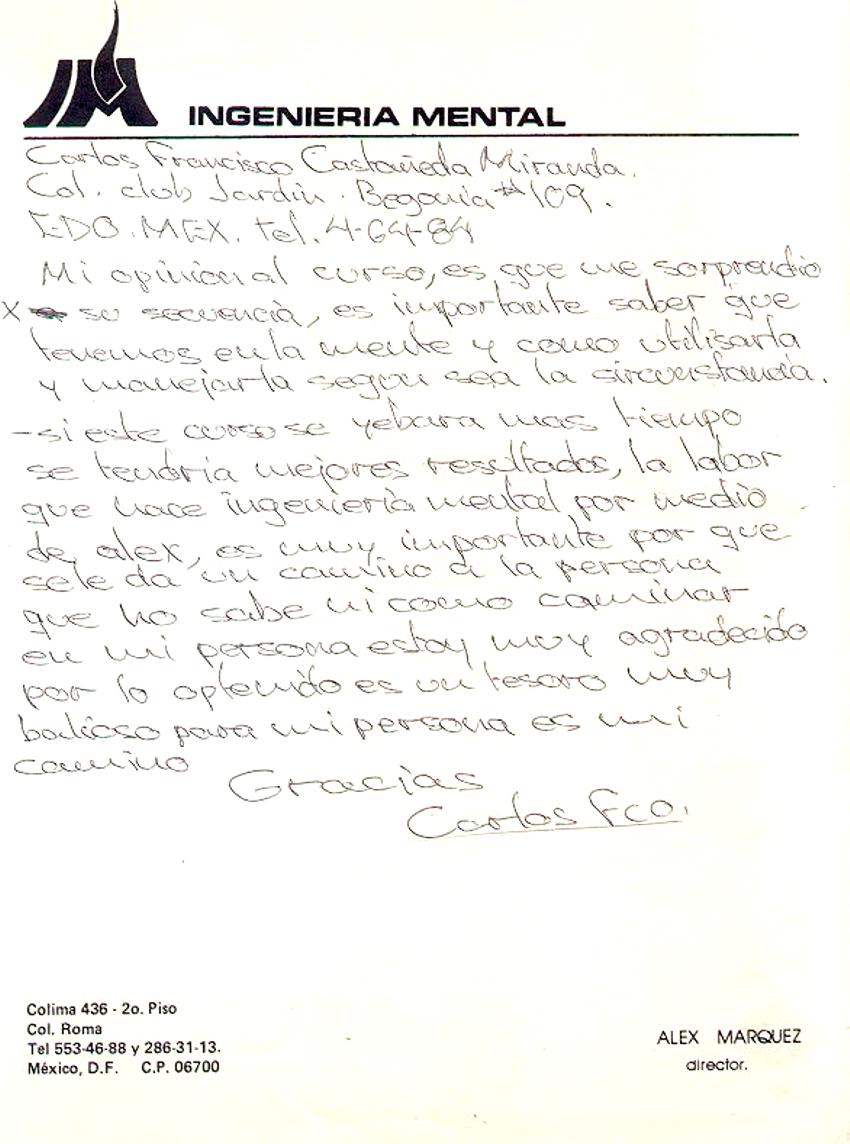 INGENIERIA MENTAL
Carlos Francisco Castañeda Miranda.
Col. club Jardin. Begonia #109.
EDO. MEX. tel. 4-64-84
Mi opinion al curso, es que me sorprendio
x su secuencia, es importante saber que
tenemos en la mente y como utilisarla
y manejarla segun sea la sircunstancia.
- si este curso se yebara mas tiempo
se tendria mejores resultados, la labor
que hace ingenieria mental por medio
de alex, es muy importante por que
sele da un camino a la persona
que no sabe ni como caminar
en mi persona estoy muy agradecido
por lo optenido es un tesoro muy
balioso para mi persona es mi
camino
Gracias
Carlos Fco.
Colima 436 - 2o. Piso
Col. Roma
Tel 553-46-88 y 286-31-13.
México, D.F. C.P. 06700
ALEX MARQUEZ
director.